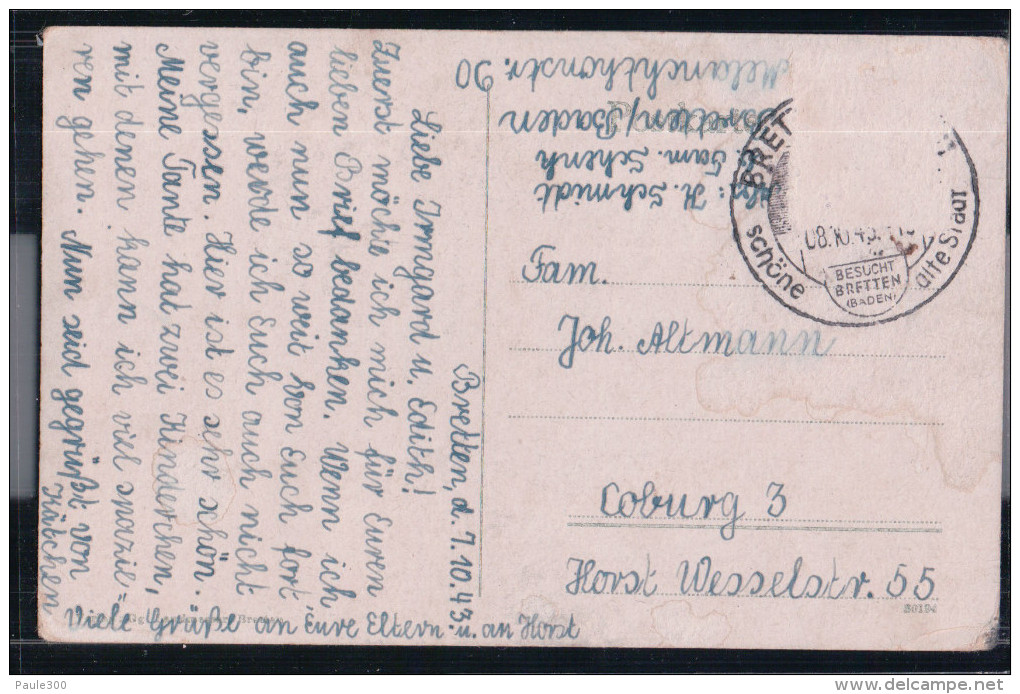 Bretten, d. 7.10.43.
Liebe Irmgard u. Edith!
Zuerst möchte ich mich für Euren
lieben Brief bedanken. Wenn ich
auch nun so weit von Euch fort
bin, werde ich Euch auch nicht
vergessen. Hier ist es sehr schön.
Meine Tante hat zwei Kinderchen,
mit denen kann ich viel spazie-
ren gehen. Nun seid gegrüßt von
Kätchen
Viele Grüße an Eure Eltern u. an Horst
H. Schmidt
Fam. Schenk
Bretten/Baden
Melanchthonstr. 90
BRET
08.10.43
BESUCHT
BRETTEN
(BADEN)
schöne
alte Stadt
Fam.
Joh. Altmann
Coburg 3
Horst Wesselstr. 55
30194
Paule300